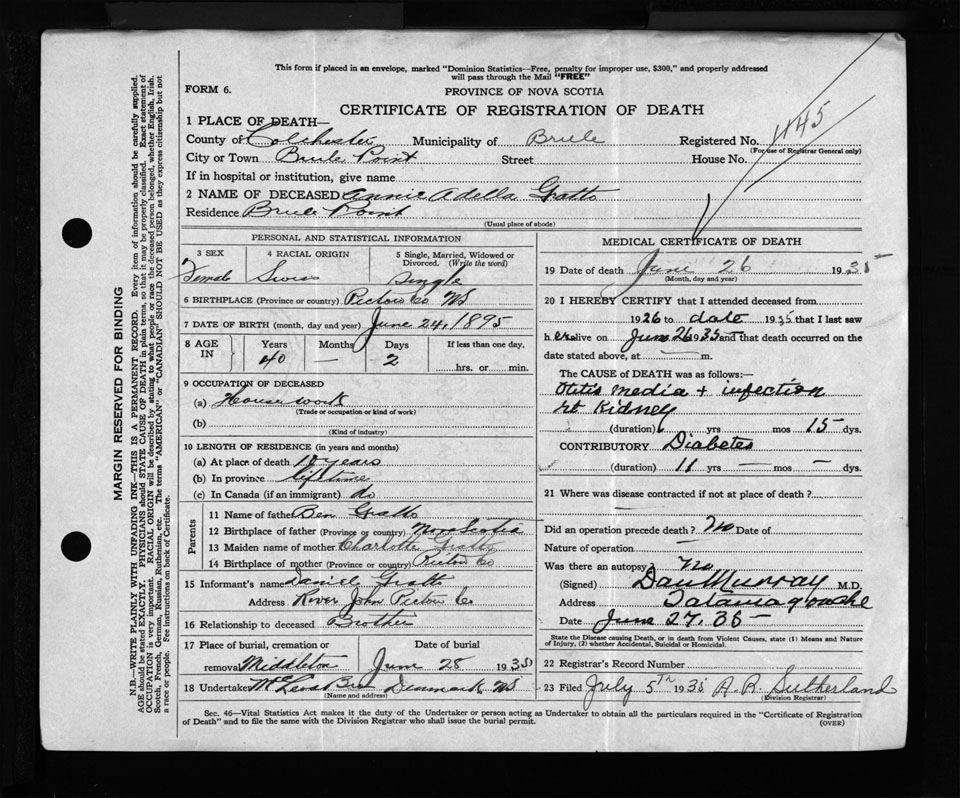 This form if placed in an envelope, marked "Dominion Statistics—Free, penalty for improper use, $300," and properly addressed
will pass through the Mail "FREE"
FORM 6.
PROVINCE OF NOVA SCOTIA
CERTIFICATE OF REGISTRATION OF DEATH
1145
1 PLACE OF DEATH—
County of Colchester Municipality of Brule Registered No.
(For use of Registrar General only)
City or Town Brule Point Street House No.
If in hospital or institution, give name
2 NAME OF DECEASED Annie Adella Gratto
Residence Brule Point
(Usual place of abode)
PERSONAL AND STATISTICAL INFORMATION
3 SEX Female
4 RACIAL ORIGIN Swiss
5 Single, Married, Widowed or
Divorced. (Write the word)
Single
6 BIRTHPLACE (Province or country) Pictou Co NS
7 DATE OF BIRTH (month, day and year) June 24, 1895
8 AGE IN Years Months Days If less than one day,
40 — 2 hrs. or min.
9 OCCUPATION OF DECEASED
(a) Housework
(Trade or occupation or kind of work)
(b)
(Kind of industry)
10 LENGTH OF RESIDENCE (in years and months)
(a) At place of death years
(b) In province lifetime
(c) In Canada (if an immigrant) do
Parents
11 Name of father Ben Gratto
12 Birthplace of father (Province or country) Nova Scotia
13 Maiden name of mother Charlotte Gratto
14 Birthplace of mother (Province or country) Pictou Co
15 Informant's name Daniel Gratto
Address River John Pictou Co
16 Relationship to deceased Brother
17 Place of burial, cremation or Date of burial
removal Middleton June 28 1935
18 Undertaker Bro Denmark NS
(Name and address)
MEDICAL CERTIFICATE OF DEATH
19 Date of death June 26 1935
(Month, day and year)
20 I HEREBY CERTIFY that I attended deceased from
1926 to date 1935 that I last saw
her alive on June 26 1935 and that death occurred on the
date stated above, at — m.
The CAUSE OF DEATH was as follows:—
Otitis Media + infection
Kidney
(duration) yrs mos 15 dys.
CONTRIBUTORY Diabetes
(duration) 11 yrs — mos — dys.
21 Where was disease contracted if not at place of death?
—
Did an operation precede death? No Date of
Nature of operation —
Was there an autopsy? No
(Signed) Dan Murray M.D.
Address Tatamagouche
Date June 27. 35
State the Disease causing Death, or in death from Violent Causes, state (1) Means and Nature
of Injury, (2) whether Accidental, Suicidal or Homicidal.
22 Registrar's Record Number
23 Filed July 5th 1935 A. R. Sutherland
(Division Registrar)
Sec. 46—Vital Statistics Act makes it the duty of the Undertaker or person acting as Undertaker to obtain all the particulars required in the "Certificate of Registration
of Death" and to file the same with the Division Registrar who shall issue the burial permit.
(OVER)
MARGIN RESERVED FOR BINDING
N.B.—WRITE PLAINLY WITH UNFADING INK—THIS IS A PERMANENT RECORD. Every item of information should be carefully supplied.
AGE should be stated EXACTLY. PHYSICIANS should STATE CAUSE OF DEATH in plain terms, so that it may be properly classified. Exact statement of
OCCUPATION is very important. RACIAL ORIGIN will be described by stating to what people or race the deceased person belonged, whether English, Irish,
Scotch, French, German, Russian, Ruthenian, etc. The terms "AMERICAN" or "CANADIAN" SHOULD NOT BE USED as they express citizenship but not
a race or people. See instructions on back of Certificate.